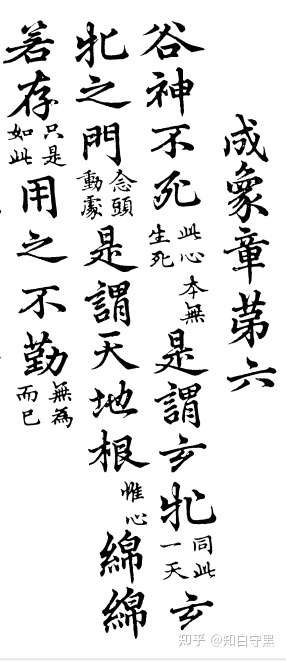 成象章苐六
谷神不死此心本無生死是謂玄牝同此一天玄
牝之門念頭動處是謂天地根惟心綿綿
若存只是如此用之不勤無為而已
知乎 @知白守黑